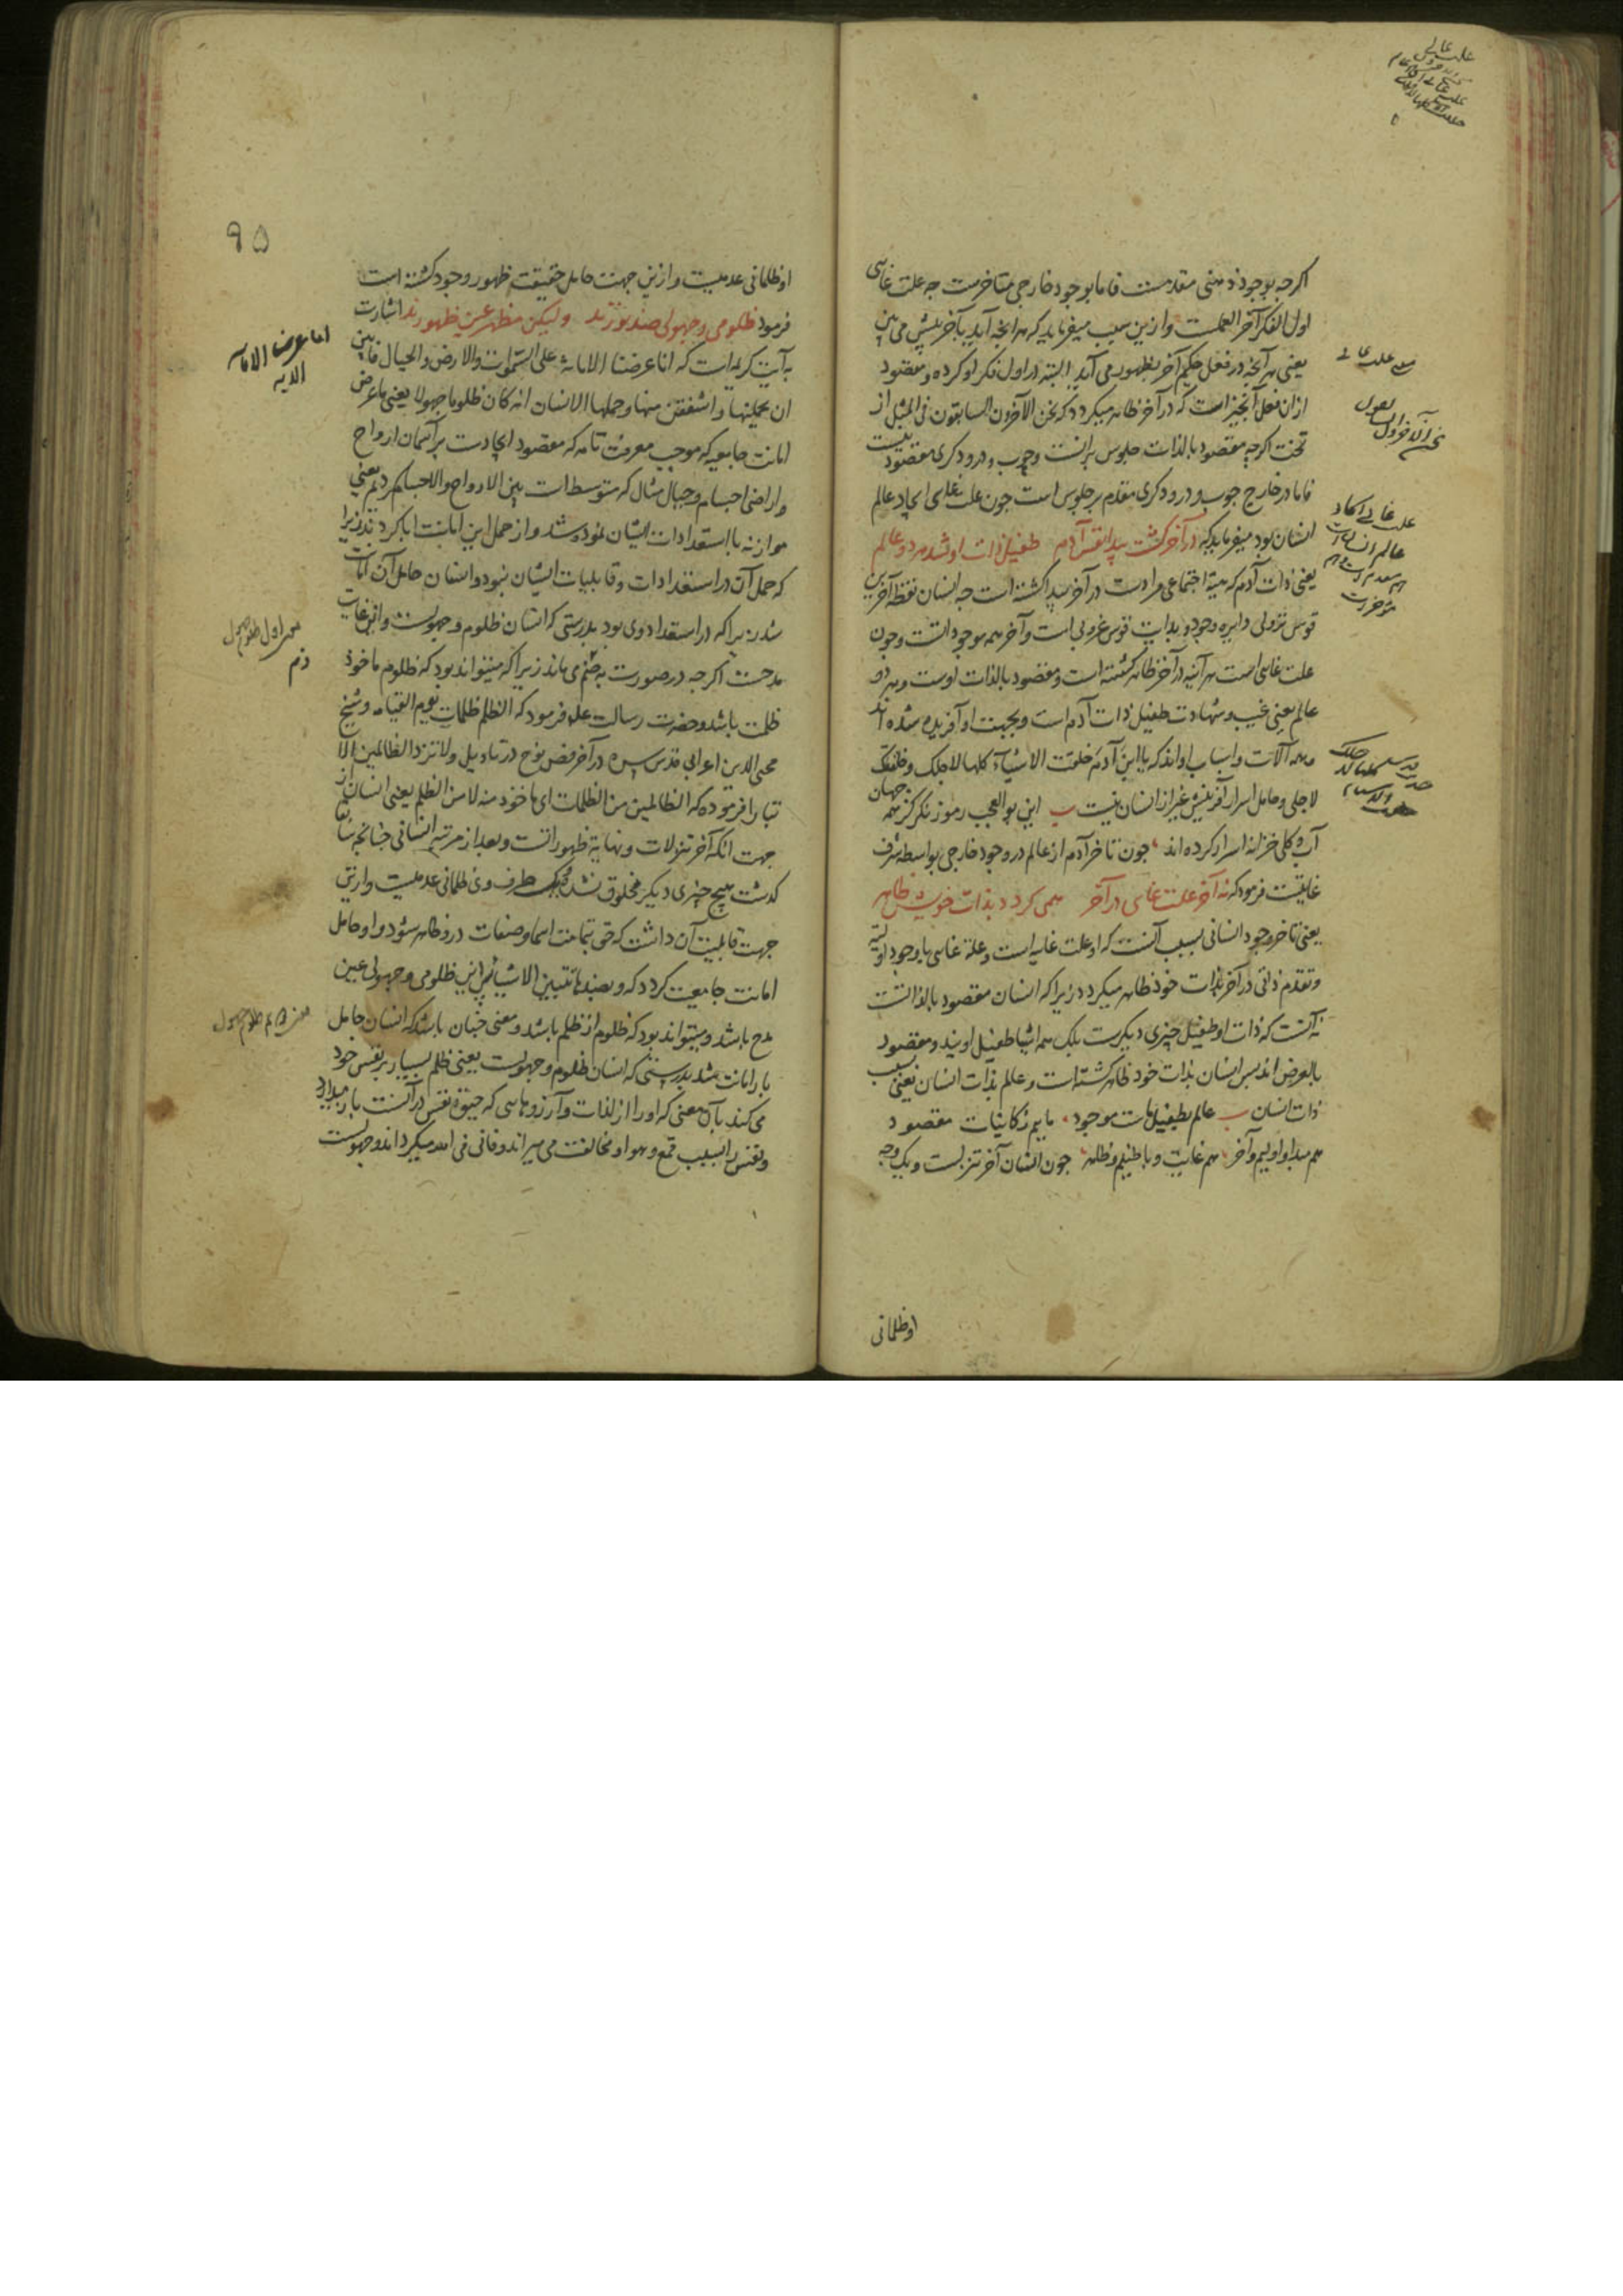 اکرچه بوجود ذهنی مقدمست فاما بوجود خارجی متاخرست چه علت غایی
اول الفکر آخر العملست و ازین سبب میفرماید که هر آنچه آید بآخر پیش می بین
یعنی هر آنچه در فعل حکیم آخر بظهور می آید البته در اول فکر او کرده و مقصود
ازان فعل آنچیز است که در آخر ظاهر میکردد که نحن الآخرون السابقون فی المثل از
تخت اکرچه مقصود بالذات جلوس برانست و چوب و درودکری مقصود نیست
فاما در خارج چوب و درودکری مقدم بر جلوس است چون علت غایی ایجاد عالم
انسان بود میفرماید که در آخر کشت پیدا نفس آدم طفیل ذات او شد هر دو عالم
یعنی ذات آدم که هیئة اجتماعی مرادست در آخر پیدا کشته است چه انسان نقطه آخرین
قوس نزولی دایره وجود و بدایت قوس عروجی است و آخر همه موجوداتست و چون
علت غایی است هر آینه در آخر ظاهر کشته است و مقصود بالذات اوست و هر دو
عالم یعنی غیب و شهادت طفیل ذات آدم است و بجهت او آفریده شده اند
و همه آلات و اسباب اواند که یا ابن آدم خلقت الاشیاء کلها لاجلک و خلقتک
لاجلی و حامل اسرار آفرینش غیر از انسان نیست ب این بو العجب رموز نکر کز همه جهان
آب و کلی خزانه اسرار کرده اند چون تاخر آدم از عالم در وجود خارجی بواسطه شرف
غایتست فرمود که نه آخر علت غایی در آخر همی کردد بذات خویش ظاهر
یعنی تاخر وجود انسانی بسبب آنست که او علت غایه است و علة غایی با وجود اولیة
و تقدم ذاتی در آخر بذات خود ظاهر میکردد زیرا که انسان مقصود بالذاتست
نه آنست که ذات او طفیل چیزی دیکرست بلک همه اشیا طفیل اویند و مقصود
بالعرض اند پس انسان بذات خود ظاهر کشته است و عالم بذات انسان یعنی بسبب
ذات انسان ب عالم بطفیل ماست موجود ماییم ز کاینات مقصود
هم مبدا و اولیم و آخر هم غایت و باطنیم و ظاهر چون انسان آخر تنزلست و یک وجه
او ظلمانی
علت غایی ایجاد
عالم انسانست
۹۵
او ظلمانی عدمیست و ازین جهت حامل حقیقت ظهور وجود کشته است
فرمود ظلومی و جهولی ضد نورند ولیکن مظهر عین ظهورند اشارت
بآیت کریمه است که انا عرضنا الامانة علی السموات والارض والجبال فابین
ان یحملنها و اشفقن منها و حملها الانسان انه کان ظلوما جهولا یعنی ما عرض
امانت جامعیه که موجب معرفت تامه که مقصود ایجادست بر آسمان ارواح
و اراضی اجسام و جبال مثال که متوسط است بین الارواح والاجسام کردیم یعنی
موازنه با استعدادات ایشان نموده شد و از حمل این امانت ابا کردند زیرا
که حمل آن در استعدادات و قابلیات ایشان نبود و انسان حامل آن امانت
شد زیرا که در استعداد وی بود بدرستی که انسان ظلوم و جهولست و این غایت
مدحست اکرچه در صورت به ذم می ماند زیرا که میتواند بود که ظلوم ماخوذ
ظلمت باشد و حضرت رسالت علیه فرمود که الظلم ظلمات یوم القیامه و شیخ
محیی الدین اعرابی قدس سره در آخر فص نوح در تاویل ولا تزد الظالمین الا
تبارا فرموده که الظالمین من الظلمات ای ماخوذ منه لا من الظلم یعنی انسان از
جهت آنکه آخر تنزلات و نهایة ظهورانست و بعد از مرتبه انسانی چنانچه سابقا
کذشت هیچ چیزی دیکر مخلوق نشد یک طرف وی ظلمانی عدمیست و ازین
جهت قابلیت آن داشت که حق بتمامت اسما و صفات درو ظاهر شود و او حامل
امانت جامعیت کردد که و بضدها تتبین الاشیا پس این ظلومی و جهولی عین
مدح باشد و میتواند بود که ظلوم از ظلم باشد و معنی چنان باشد که انسان حامل
بار امانت شد بدرستی که انسان ظلوم و جهولست یعنی ظلم بسیار بر نفس خود
می کند بآن معنی که او را از لذات و آرزوهایی که حیوة نفس در آنست باز میدارد
و نفس را بسبب قمع و هوا و مخالفت می میراند و فانی فی الله میکرداند و جهولست
انا عرضنا الامانه
الایه